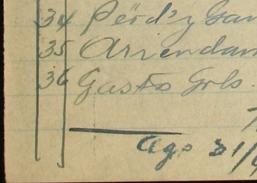 34 Pérd'y Gan
35 Arriendam
36 Gastos Grls.
Ago 31/